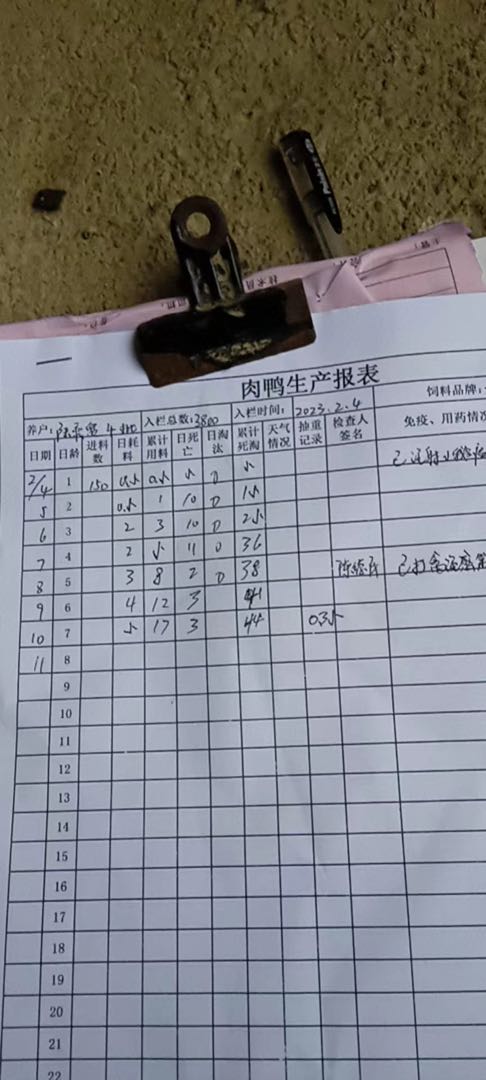 肉鸭生产报表
养户: 4 入栏总数:2800 入栏时间: 2023.2.4 饲料品牌:
日期 日龄 进料数 日耗料 累计用料 日死亡 日淘汰 累计死淘 天气情况 抽重记录 检查人签名 免疫、用药情况
2/4 1 150 0.5 0.5 5 0 5
5 2 0.5 1 10 0 15
6 3 2 3 10 0 25
7 4 2 5 11 0 36
8 5 3 8 2 0 38
9 6 4 12 3 41
10 7 5 17 3 44 0.35
11 8
9
10
11
12
13
14
15
16
17
18
19
20
21
22